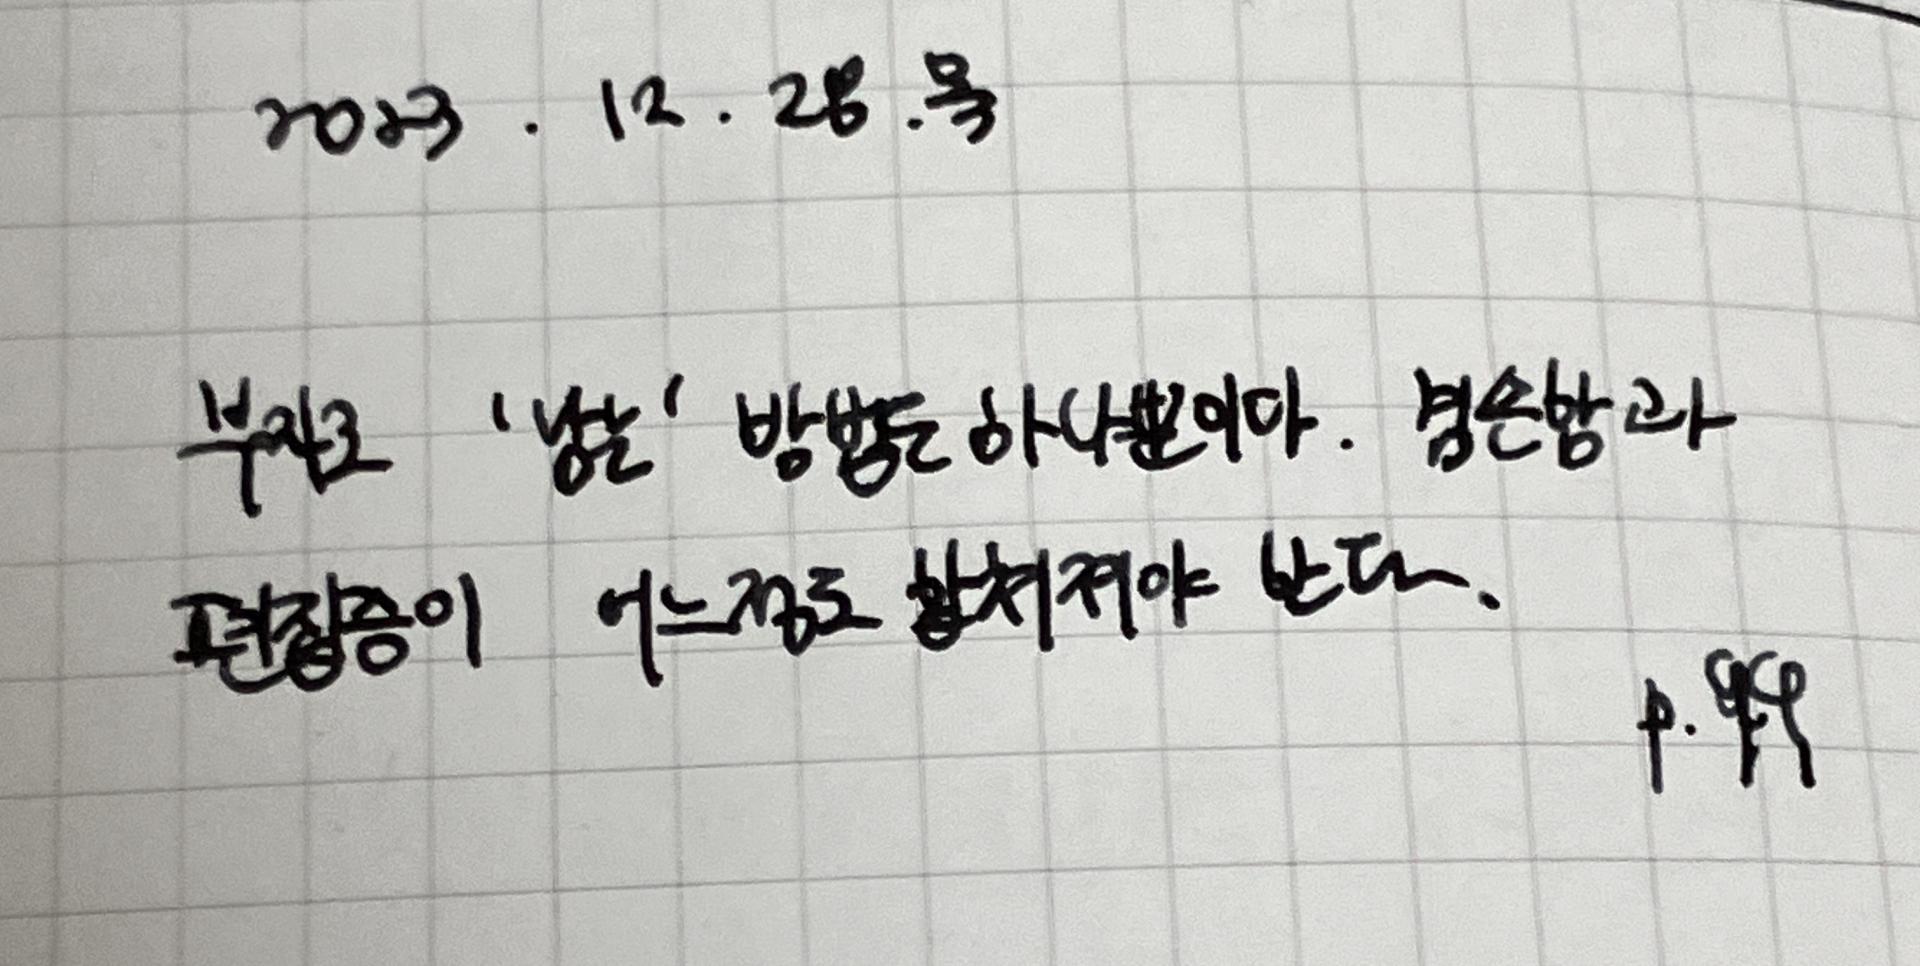 2023. 12. 28. 목
부자로 '남는' 방법은 하나뿐이다. 겸손함과
편집증이 어느정도 합쳐져야 한다.
p. 99